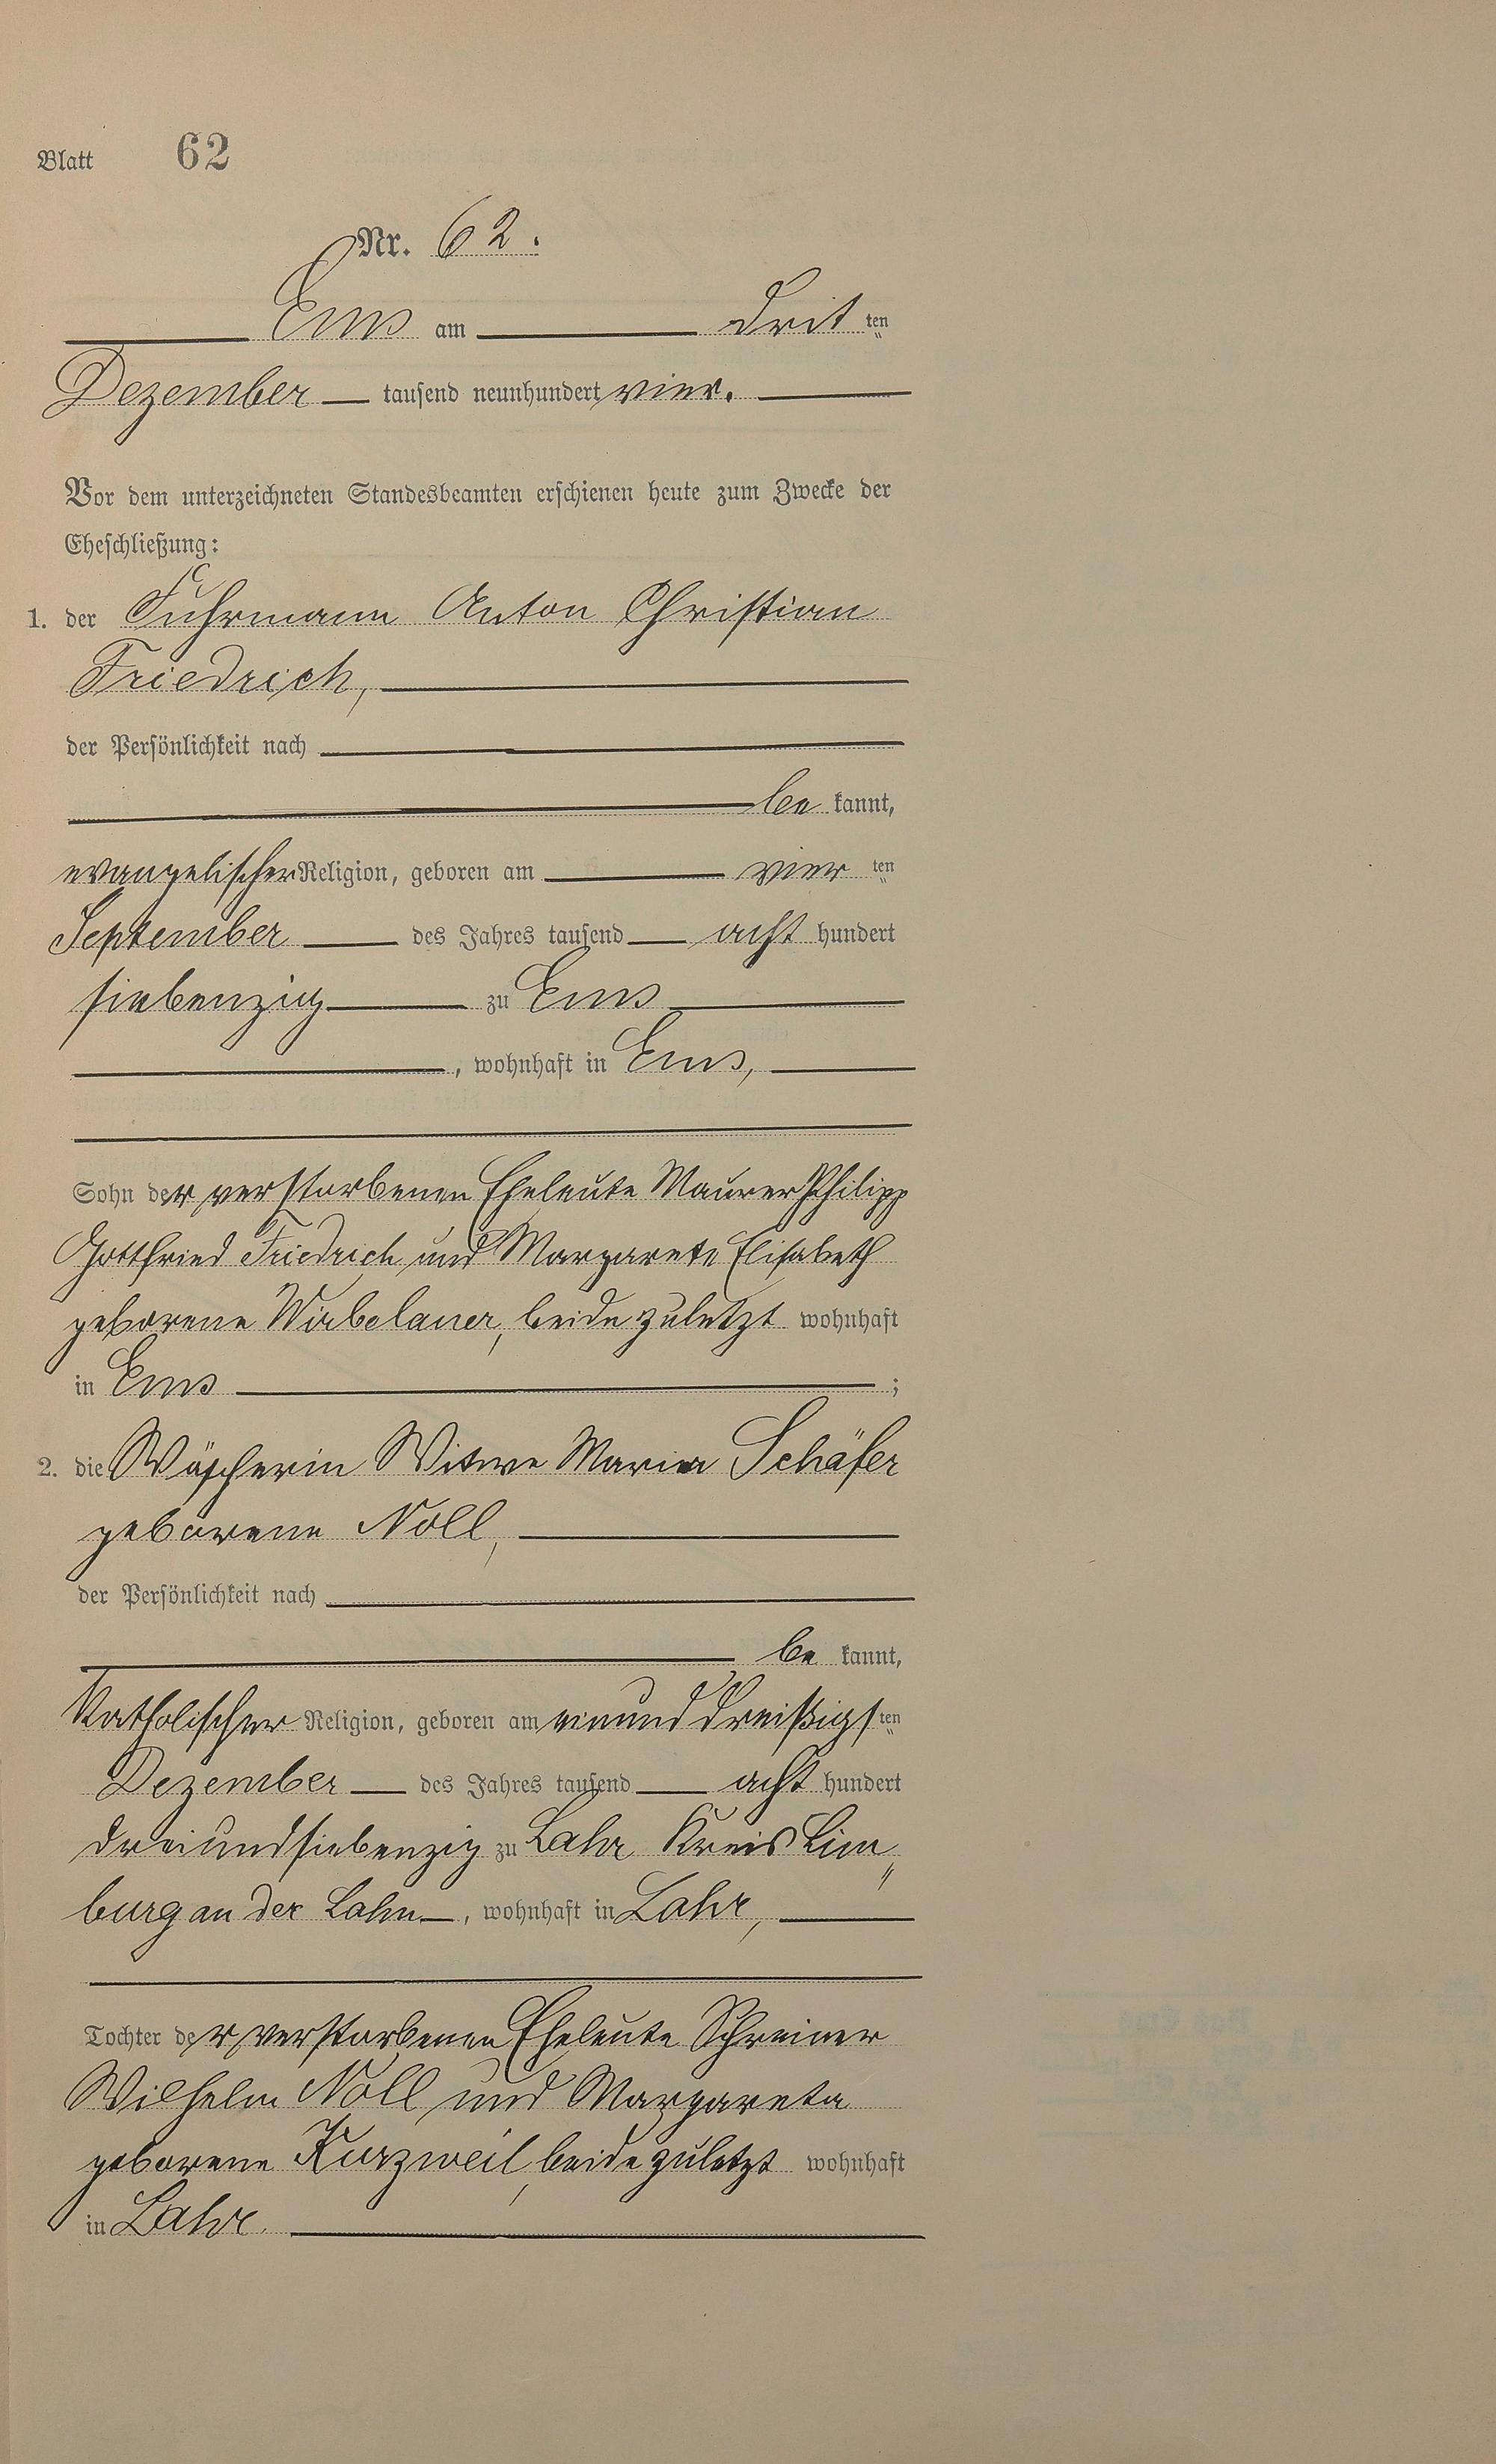 Blatt 62
Nr. 62.
Ems am drit ten
Dezember tausend neunhundert vier.
Vor dem unterzeichneten Standesbeamten erschienen heute zum Zwecke der
Eheschließung:
1. der Fuhrmann Anton Christian
Friedrich,
der Persönlichkeit nach
be kannt,
evangelischer Religion, geboren am vier ten
September des Jahres tausend acht hundert
siebenzig zu Ems
, wohnhaft in Ems,
Sohn der verstorbenen Eheleute Maurer Philipp
Gottfried Friedrich und Margarete Elisabeth
geborene Wirbelauer, beide zuletzt wohnhaft
in Ems ;
2. die Wäscherin Witwe Maria Schäfer
geborene Noll,
der Persönlichkeit nach
be kannt,
katholischer Religion, geboren am einunddreißigs ten
Dezember des Jahres tausend acht hundert
dreiundsiebenzig zu Lahr Kreis Lim„
burg an der Lahn, wohnhaft in Lahr,
Tochter der verstorbenen Eheleute Schreiner
Wilhelm Noll und Margareta
geborene Kurzweil, beide zuletzt wohnhaft
in Lahr.